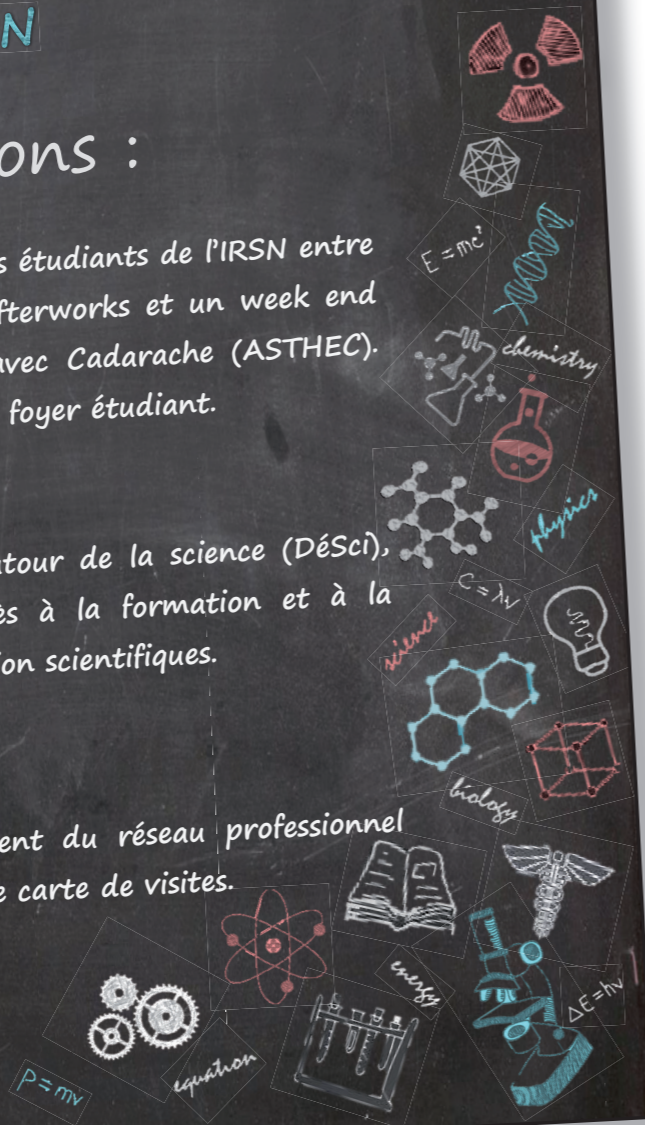 N
ons :
s étudiants de l'IRSN entre
fterworks et un week end
avec Cadarache (ASTHEC).
foyer étudiant.
tour de la science (DéSci),
ès à la formation et à la
ion scientifiques.
ent du réseau professionnel
e carte de visites.
E = mc²
chemistry
physics
C = λν
science
biology
energy
ΔE = hν
equation
P = mv